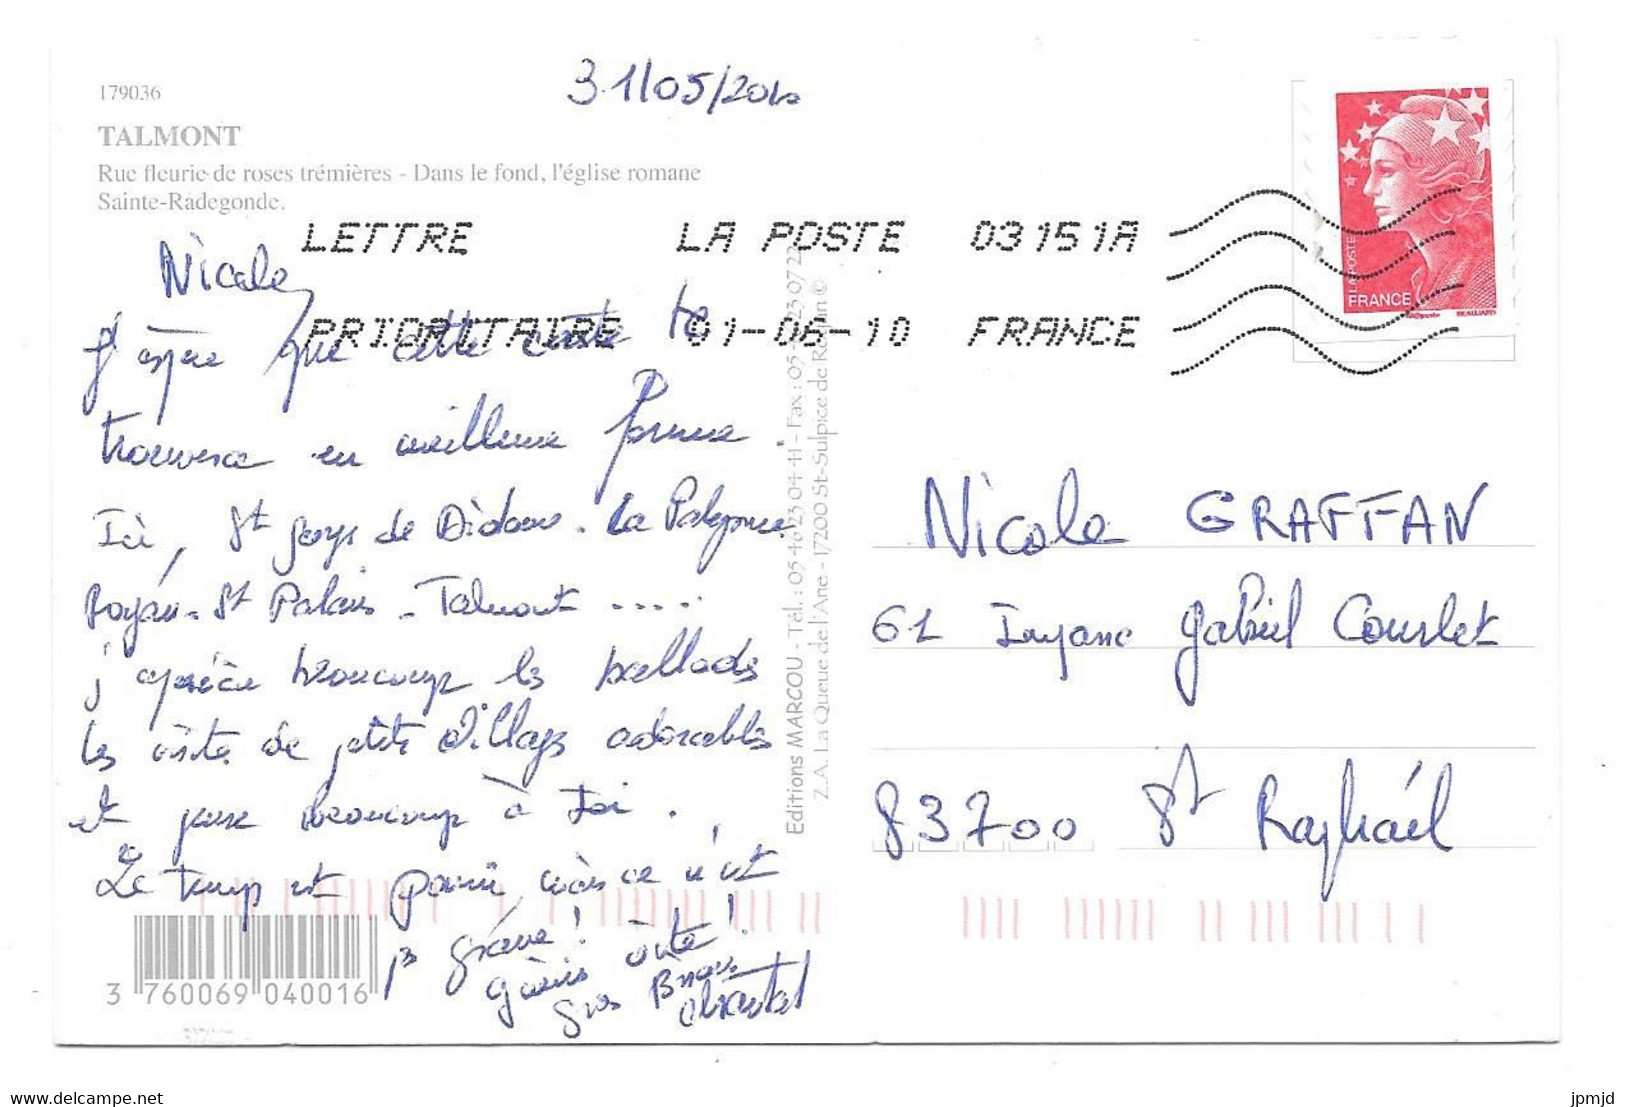 31/05/2010
179036
TALMONT
Rue fleurie de roses trémières - Dans le fond, l'église romane
Sainte-Radegonde.
LETTRE LA POSTE 03151A
PRIORITAIRE 01-06-10 FRANCE
LA POSTE
FRANCE
Nicole,
J'espère que cette carte te
trouvera en meilleure forme.
Ici, St Georges de Didonne - La Palmyre
Royan - St Palais - Talmont .....
j'apprécie beaucoup les ballades
les visite de petits villages adorables
et pense beaucoup à toi.
Le temps est pourri, mais ce n'est
pas grave!
Guéris vite!
Gros Bisous
Chantal
3 760069 040016
Editions MARCOU - Tél.: 05 46 23 04 11 - Fax : 05 46 23 07 22
Z.A. La Queue de l'Ane - 17200 St-Sulpice de Royan ©
Nicole GRAFFAN
61 Impasse Gabriel Courlet
83700 St Raphaël
jpmjd